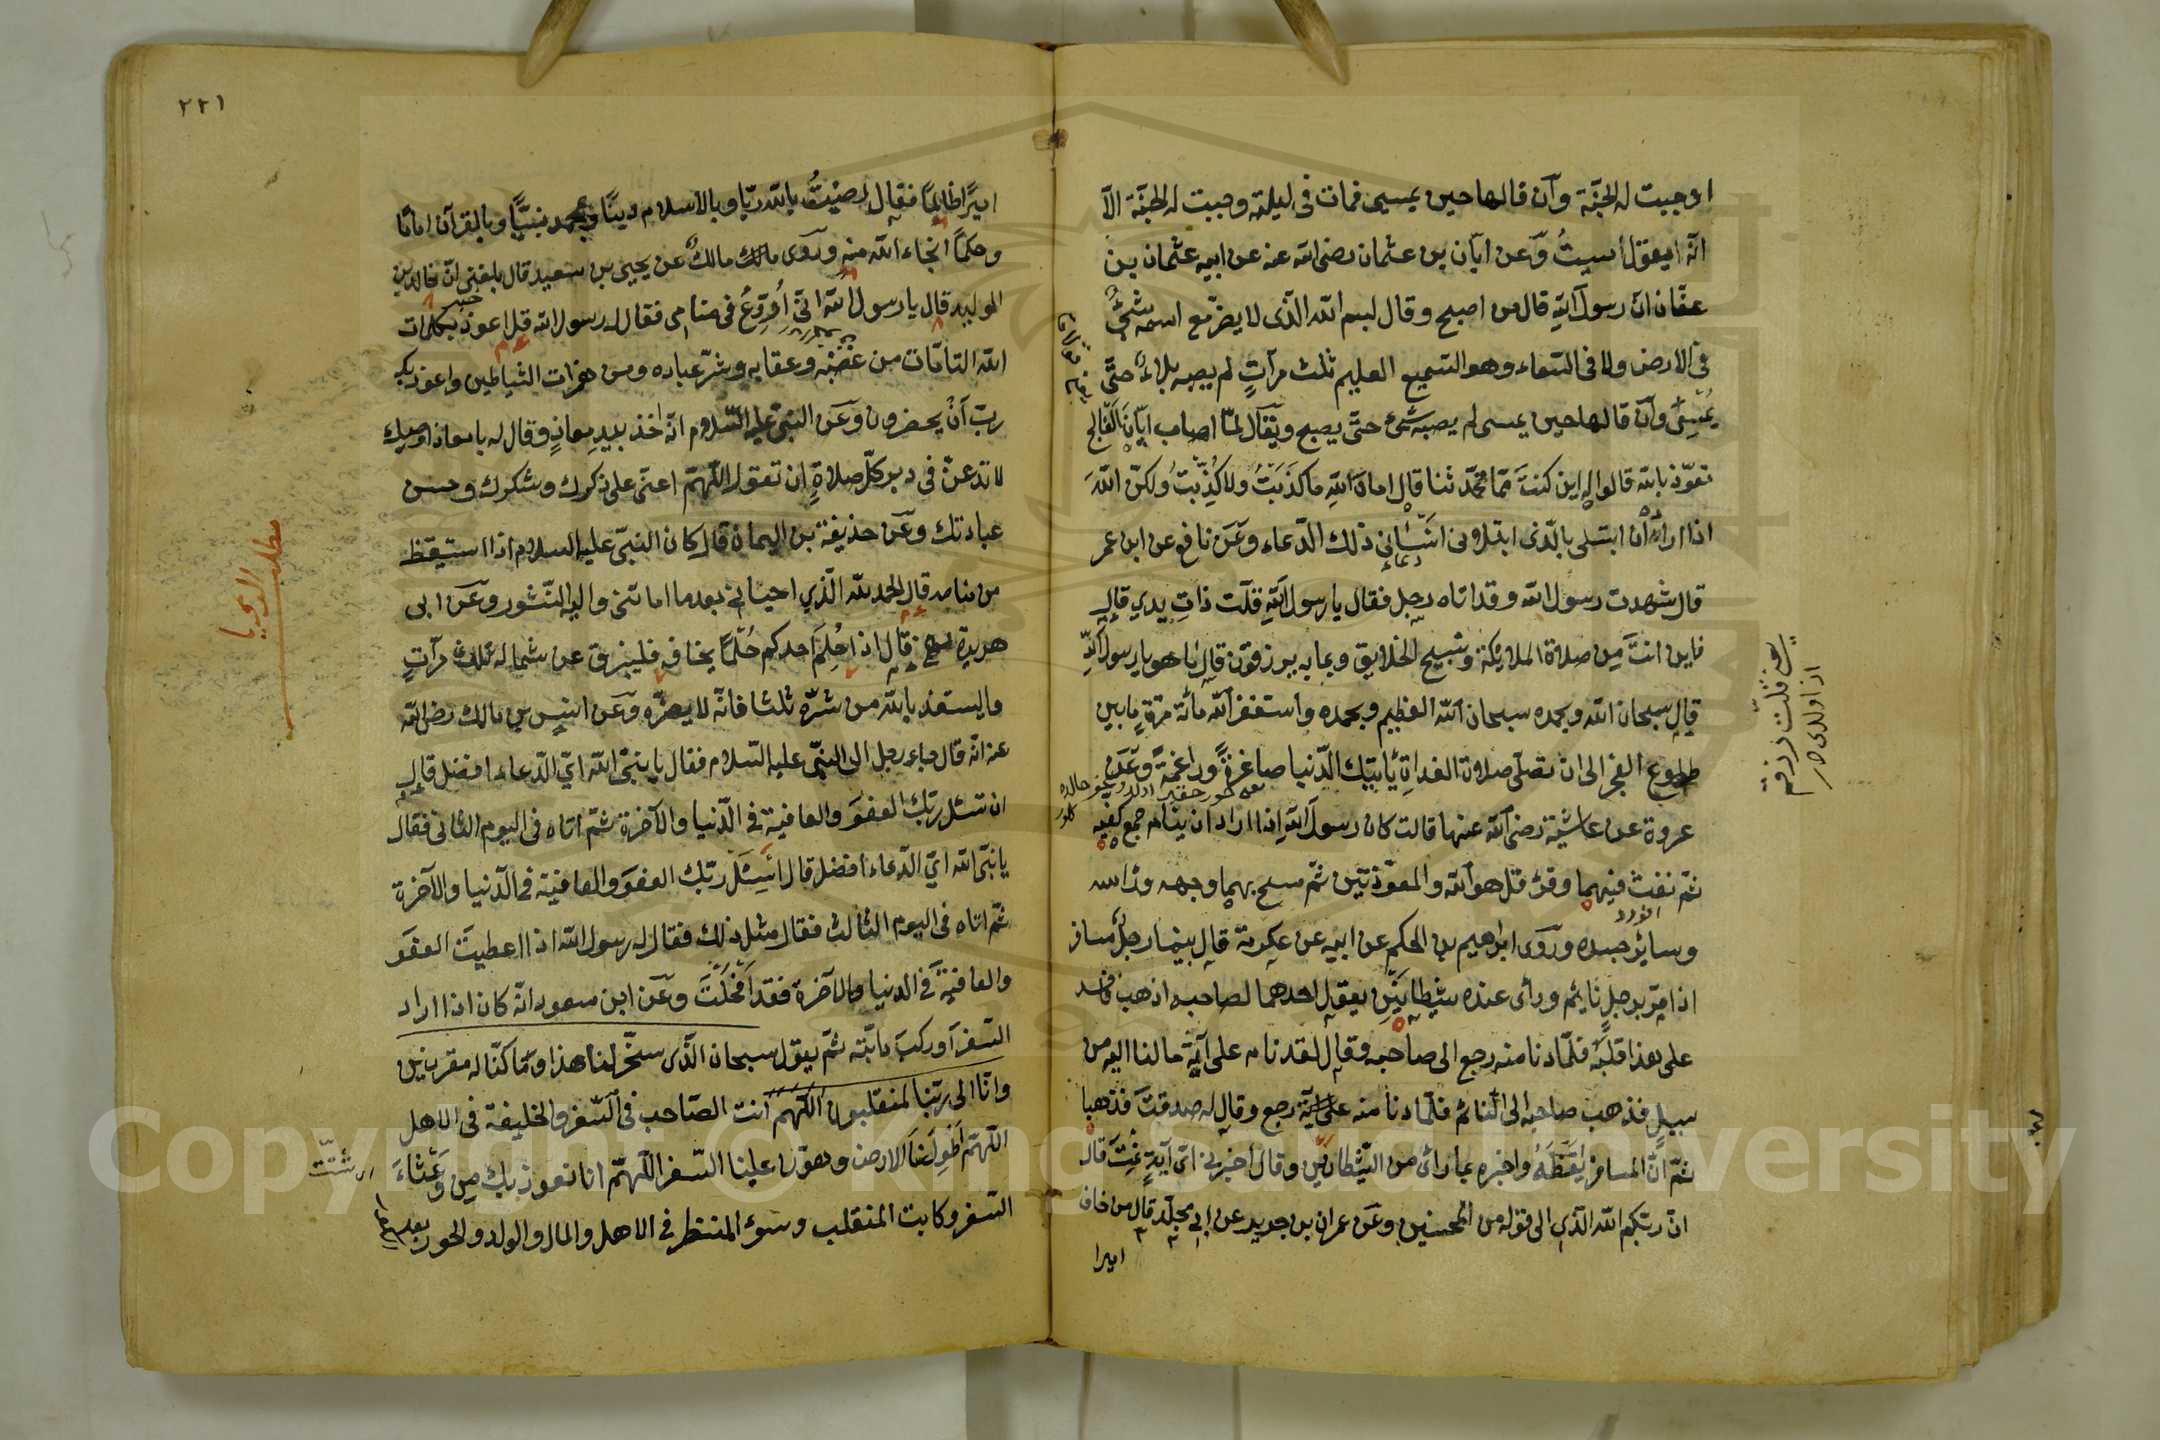 او جبت له الجنّة وآن قالها حين يمسى فمات فى ليلته وجبت له الجنّة الّا
انّه يقول أمسيتُ وَعن ابان بن عثمان رضى الله عنه عن ابيه عثمان بن
عفّان انّ رسول الله قال من اصبح وقال بسم الله الّذى لا يضرّ مع اسمه شئٌ
فى الارض ولا فى السّماء وهو السّميع العليم ثلث مرّاتٍ لم يصبه بلاءٌ حتّى
يُمْسِىَ وآن قالها حين يمسى لم يصبه شئ حتّى يصبح ويقآل لمّا اصاب ابّانَ الفالج
تعوّذ بالله قالوا له اين كنتَ ممّا تحدّثنا قال اما والله ما كذَبتُ ولا كُذِّبتُ ولكنّ اللهَ
اذا اراد ان ابتلى بالّذى ابتلانى انسانى ذلك الدّعاء وعَن نافع عن ابن عمر
قال شهدت رسول الله وقد اتاه رجل فقال يا رسول الله قلّت ذاتِ يدي قال
فاين انتَ من صلاة الملائكة وتسبيح الخلايق وبما به يرزقون قال ما هو يا رسول الله
قال سبحان الله وبحمده سبحان الله العظيم وبحمده واستغفر الله مائة مرّة ما بين
طلوع الفجر الى ان تصلّى صلاة الغداةِ يأتيك الدّنيا صاغرةً وراغمةً وعَن
عروة عن عايشة رضى الله عنها قالت كان رسول الله اذا اراد ان ينام جمع كفّيه
ثمّ نفث فيهما وقرئ قل هو الله والمعوّذتين ثمّ مسح بهما وجهه ورأسه
وسايرَ جسده وروَى ابراهيم بن الحكم عن ابيه عن عكرمة قال بينما رجلٌ مسافر
اذ مرّ برجلٍ نايم ورأى عنده شيطانَيْنِ يقول احدهما لصاحبه اذهب فافسد
على هذا قلبَه فلمّا دنا منه رجع الى صاحبه وقال لقد نام على آيةٍ ما لنا اليه من
سبيلٍ فذهب صاحبه الى النّائم فلمّا دنا منه رجع وقال له صدقتَ فذهبا
ثمّ انّ المسافر ايقظَه واخبره بما رأى من الشّيطانَيْن وقال اخبرنى اىّ آيةٍ نمتَ قال
انّ ربّكم الله الّذي الى قوله من المحسنين وعَن عمران بن جدير عن ابى مجلّد قال من خاف
اميرا
يعنى قلّت رزقى
٢٢١
اميرًا ظالمًا فقال رضيتُ بالله ربّا وبالاسلام دينًا وبمحمد نبيّاً وبالقرآن امامًا
وحكمًا انجاه الله منه وروَى مالك عن يحيى بن سعيد قال بلغنى انّ خالد بن
الوليد قال يا رسول الله انّى اُروَّعُ فى منامى فقال له رسول الله قل اعوذ بكلمات
الله التامّات من غضبه وعقابه وشرّ عباده ومن همزات الشّياطين واعوذ بك
ربّ اَنْ يحضرون وعَن النبىّ عليه السّلام انّه اخذ بيدِ معاذٍ وقال له يا معاذ اوصيك
لا تدعنّ فى دبر كلّ صلاةٍ ان تقول اللّهمّ اعنّى على ذكرك وشكرك وحسن
عبادتك وعَن حذيفة بن اليمان قال كان النبىّ عليه السلام اذا استيقظ
من منامه قال الحمد لله الّذي احيانى بعد ما اماتنى واليه النّشور وعَن ابى
هريرة قال اذا حُلِمَ احدكم حُلمًا يخافه فليبزق عن شماله ثلث مرّاتٍ
واليستعذ بالله من شرّه ثلثا فانّه لا يضرّه وعَن انس بن مالك رضى الله
عنه انّه قال جاء رجل الى النبىّ عليه السّلام فقال يا نبىّ الله ايّ الدّعاء افضل قال
ان تسئل ربّك العفوَ والعافية فى الدّنيا والآخرة ثمّ اتاه فى اليوم الثانى فقال
يا نبىّ الله ايّ الدّعاء افضل قال اسئل ربّك العفوَ والعافية فى الدّنيا والآخرة
ثمّ اتاه فى اليوم الثالث فقال مثل ذلك فقال له رسول الله اذا اعطيتَ العفوَ
والعافيةَ فى الدنيا والآخرة فقد افلحتَ وعَن ابن مسعود انّه كان اذا اراد
السّفر أو ركب دابّته ثمّ يقول سبحان الّذى سخّر لنا هذا وما كنّا له مقرنين
وانّا الى ربّنا لمنقلبون اللّهمّ انت الصّاحب فى السّفر والخليفة فى الاهل
اللّهمّ اطوِ لنا الارض وهوّن علينا السّفر اللّهمّ انا نعوذ بك من وعْثاءَ
السّفر وكابت المنقلب وسوء المنظر فى الاهل والمال والولد والحور بعد
مطلب الرويا
Copyright © King Saud University